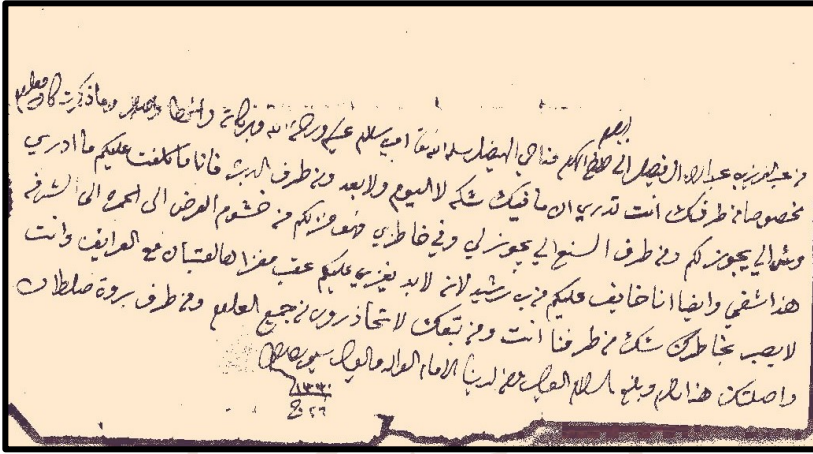 من عبدالعزيز بن عبدالرحمن آل فيصل الى جناب الاخ المكرم مناحي الهيضل سلمه الله تعالى سلام عليكم ورحمة الله وبركاته والخط وصل وما ذكرت كان معلوم
مخصوصا من طرفك انت تدري ان ما فيك شك لا اليوم ولا بعد ومن طرف فانا ما كلفت عليكم ما ادري
وش الي يجوز لكم ومن طرف السنع الي يجوز لي وفي خاطري منزلكم من خشوم العرض الى الحمره الى الشرفه
هذا شفي وايضا انا خايف عليكم من بن رشيد لانه لابد يغزي عليكم عقب مغزا هالقتبان مع العرايف وانت
لا يصير بخاطرك شك من طرفنا انت ومن تبعك لا تحاذرون من جميع العلوم ومن طرف بروة سلطان
واصلتك هذا ما لزم وبلغ السلام العيال ومن لدينا الامام الوالد والعيال يسلمون
١٣٣٠
٢٦